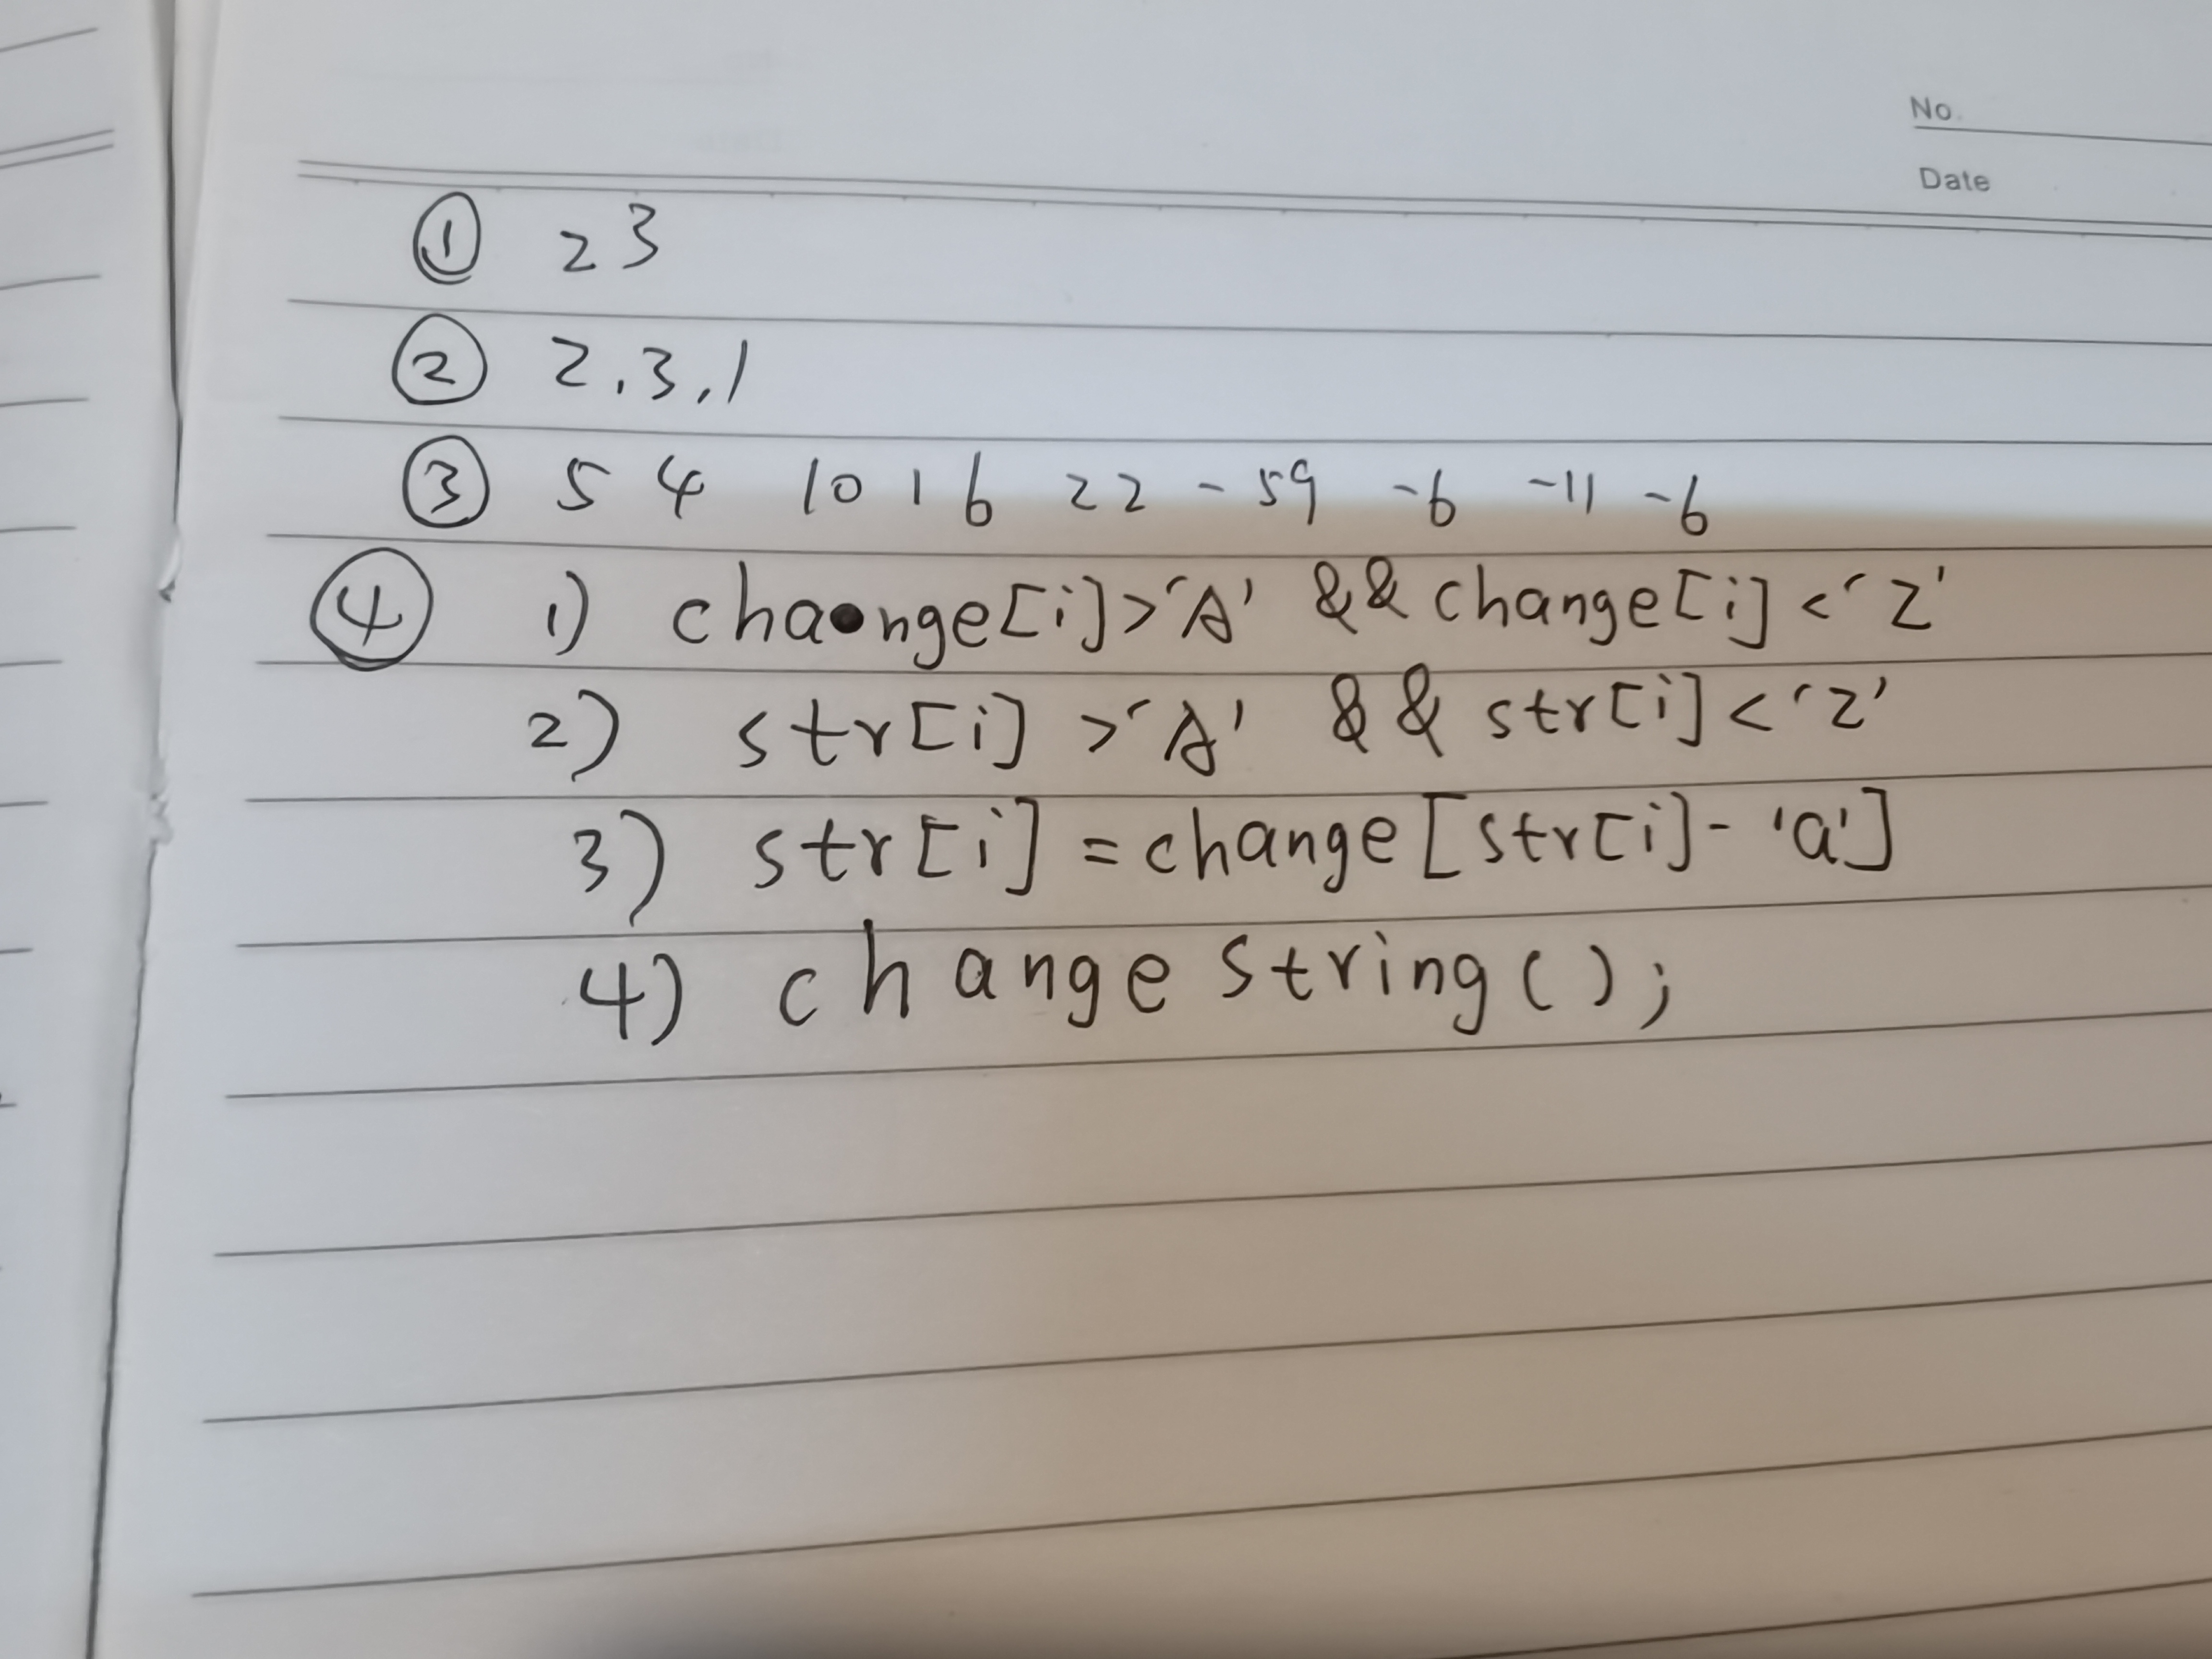 No.
Date
① 23
② 2,3,1
③ 5 4 10 16 22 -59 -6 -11 -6
④ 1) change[i]>'A' && change[i]<'Z'
2) str[i] >'A' && str[i]<'Z'
3) str[i] = change[str[i]-'a']
4) changestring();